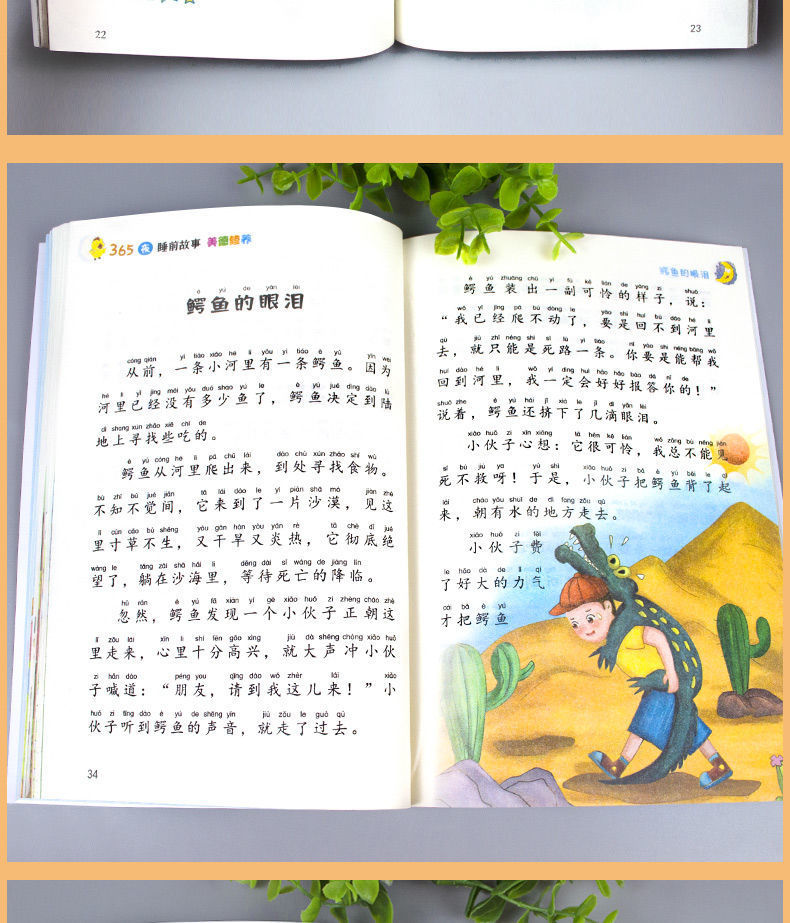 22
23
365夜 睡前故事 美德培养
è yú de yǎn lèi
鳄鱼的眼泪
cóng qián yì tiáo xiǎo hé li yǒu yì tiáo è yú yīn wèi
从前，一条小河里有一条鳄鱼。因为
hé li yǐ jīng méi yǒu duō shao yú le è yú jué dìng dào lù
河里已经没有多少鱼了，鳄鱼决定到陆
dì shang xún zhǎo xiē chī de
地上寻找些吃的。
è yú cóng hé li pá chū lái dào chù xún zhǎo shí wù
鳄鱼从河里爬出来，到处寻找食物。
bù zhī bù jué jiān tā lái dào le yí piàn shā mò jiàn zhè
不知不觉间，它来到了一片沙漠，见这
li cùn cǎo bù shēng yòu gān hàn yòu yán rè tā chè dǐ jué
里寸草不生，又干旱又炎热，它彻底绝
wàng le tǎng zài shā hǎi li děng dài sǐ wáng de jiàng lín
望了，躺在沙海里，等待死亡的降临。
hū rán è yú fā xiàn yí gè xiǎo huǒ zi zhèng cháo zhè
忽然，鳄鱼发现一个小伙子正朝这
li zǒu lái xīn li shí fēn gāo xìng jiù dà shēng chòng xiǎo huǒ
里走来，心里十分高兴，就大声冲小伙
zi hǎn dào péng you qǐng dào wǒ zhèr lái xiǎo
子喊道：“朋友，请到我这儿来！”小
huǒ zi tīng dào è yú de shēng yīn jiù zǒu le guò qù
伙子听到鳄鱼的声音，就走了过去。
34
鳄鱼的眼泪
è yú zhuāng chū yí fù kě lián de yàng zi shuō
鳄鱼装出一副可怜的样子，说：
wǒ yǐ jīng pá bú dòng le yào shi huí bú dào hé li
“我已经爬不动了，要是回不到河里
qù jiù zhǐ néng shì sǐ lù yì tiáo nǐ yào shi néng bāng wǒ
去，就只能是死路一条。你要是能帮我
huí dào hé li wǒ yí dìng huì hǎo hǎo bào dá nǐ de
回到河里，我一定会好好报答你的！”
shuō zhe è yú hái jǐ xià le jǐ dī yǎn lèi
说着，鳄鱼还挤下了几滴眼泪。
xiǎo huǒ zi xīn xiǎng tā hěn kě lián wǒ zǒng bù néng jiàn
小伙子心想：它很可怜，我总不能见
sǐ bú jiù ya yú shì xiǎo huǒ zi bǎ è yú bēi le qǐ
死不救呀！于是，小伙子把鳄鱼背了起
lái cháo yǒu shuǐ de dì fang zǒu qù
来，朝有水的地方走去。
xiǎo huǒ zi fèi
小伙子费
le hǎo dà de lì qi
了好大的力气
cái bǎ è yú
才把鳄鱼